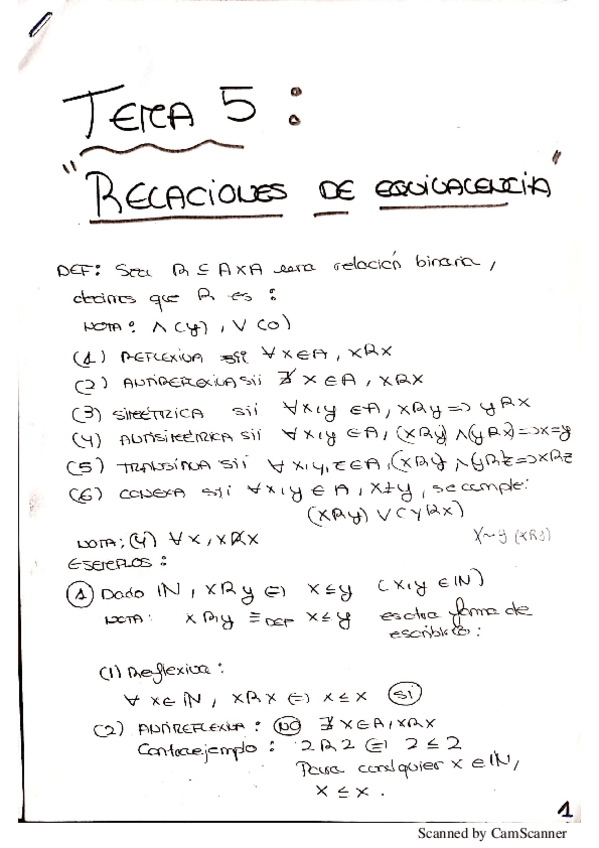 TEMA 5 :
"RELACIONES DE EQUIVALENCIA"
DEF: Sea R ⊆ A×A una relación binaria,
decimos que R es :
NOTA: ∧ (y), ∨ (o)
(1) REFLEXIVA sii ∀x∈A, xRx
(2) ANTIREFLEXIVA sii ∄ x∈A, xRx
(3) SIMÉTRICA sii ∀x,y ∈A, xRy => yRx
(4) ANTISIMÉTRICA sii ∀x,y ∈A, (xRy) ∧(yRx)=>x=y
(5) TRANSITIVA sii ∀x,y,z∈A,(xRy) ∧(yRz=>xRz
(6) CONEXA sii ∀x,y ∈ A, x≠y, se cumple:
(xRy) ∨ (yRx)
NOTA: (4) ∀x, xR̸x x~y (xRy)
EJEMPLOS :
① Dado ℕ, xRy <=> x≤y (x,y ∈ℕ)
NOTA: xRy ≡DEF x≤y es otra forma de
escribirlo:
(1) Reflexiva :
∀ x∈ℕ, xRx <=> x≤x (SI)
(2) ANTIREFLEXIVA : (NO) ∄ x∈A, xRx
Contraejemplo : 2R2 <=> 2≤2
Para cualquier x∈ℕ,
x≤x.
1
Scanned by CamScanner